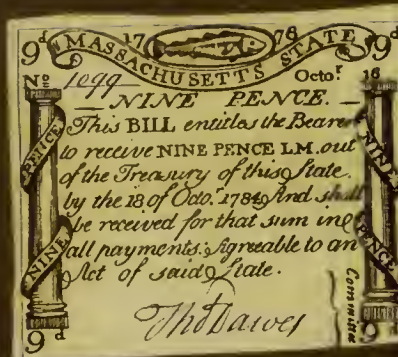 9d 17 78 9d
MASSACHUSETTS STATE
No 1099 Octor 18
NINE PENCE.
This BILL entitles the Bearer
to receive NINE PENCE LM. out
of the Treasury of this State.
by the 18 of Octo.r 1784 And shall
be received for that sum in
all payments. Agreeable to an
Act of said State.
PENCE
NINE
NINE
PENCE
Thos Dawes
Committee
9d 9